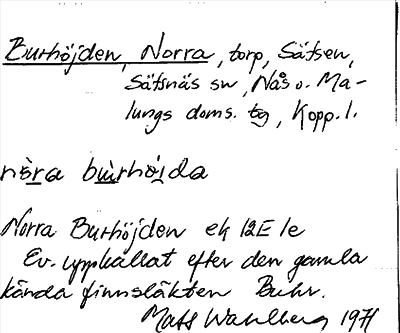 Burhöjden, Norra, torp, Säfsen,
Säfsnäs sn, Nås o. Ma-
lungs doms. tg, Kopp. l.
nò̱ra bùrhö̱jda
Norra Burhöjden ek 12E 1e
Ev. uppkallat efter den gamla
kända finnsläkten Buhr.
Mats Wahlberg 1971